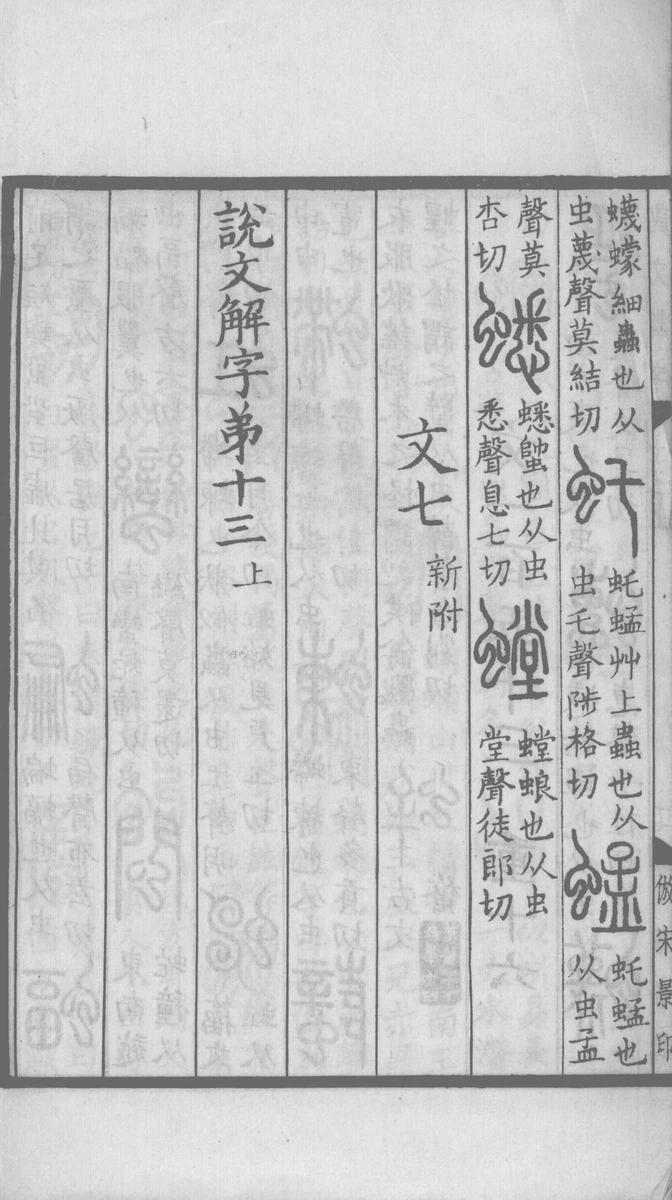 蠛蠓細蟲也从
虫蔑聲莫結切
虴
虴蜢艸上蟲也从
虫乇聲陟格切
蜢
虴蜢也
从虫孟
聲莫
杏切
蟋
蟋𧍓也从虫
悉聲息七切
螳
螳蜋也从虫
堂聲徒郎切
文七 新附
說文解字弟十三上
倣宋景印